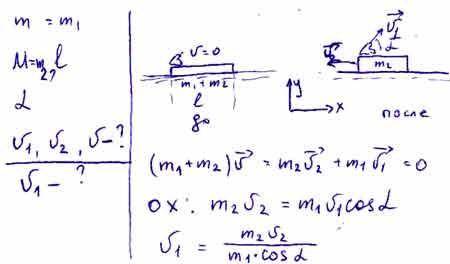 m = m₁
M = m₂, l
α
υ₁, υ₂, υ - ?
υ₁ - ?
υ = 0
m₁ + m₂
l
до
y
x
υ₁
α
m₂
после
(m₁ + m₂) υ⃗ = m₂ υ⃗₂ + m₁ υ⃗₁ = 0
OX: m₂ υ₂ = m₁ υ₁ cos α
υ₁ = m₂ υ₂ / m₁ · cos α